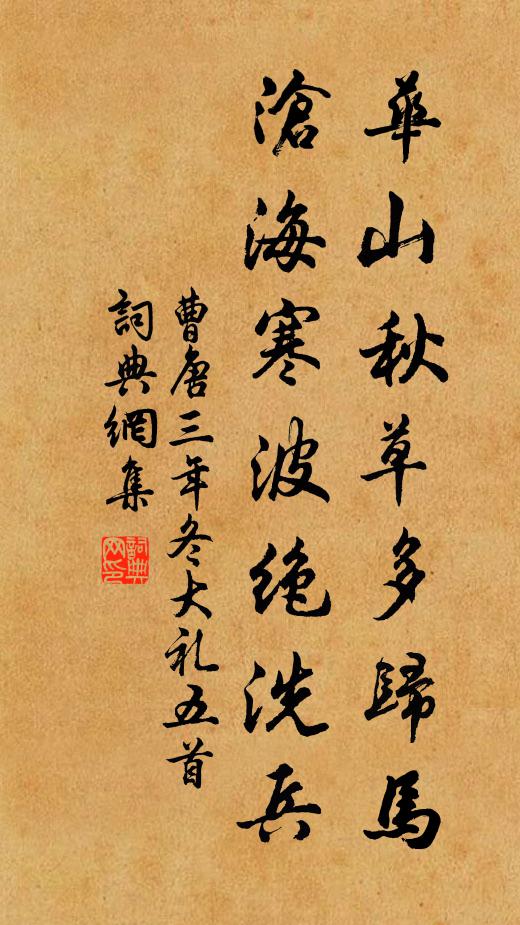 華山秋草多歸馬
滄海寒波绝洗兵
曹唐三年冬大礼五首
詞典網集
詞典网印